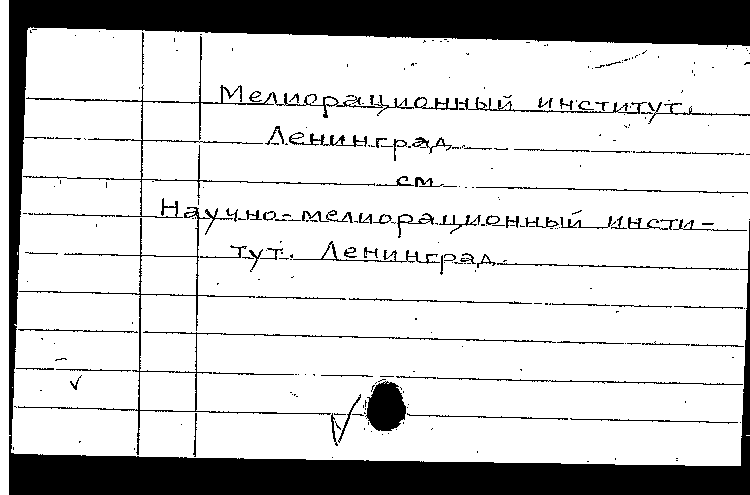 Мелиорационный институт.
Ленинград.
см.
Научно-мелиорационный инсти-
тут. Ленинград.